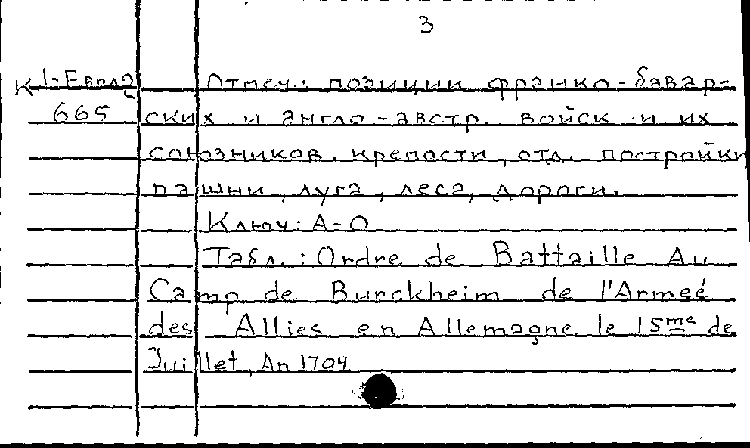 3
К 1-Европа
2
665
Отмеч.: позиции франко-бавар-
ских и англо-австр. войск и их
союзников, крепости, отд. постройки
пашни, луга, леса, дороги.
Ключ: А-О
Табл.: Ordre de Battaille Au
Camp de Burckheim de l'Armeé
des Allies en Allemagne le 15me de
Juillet, An 1704